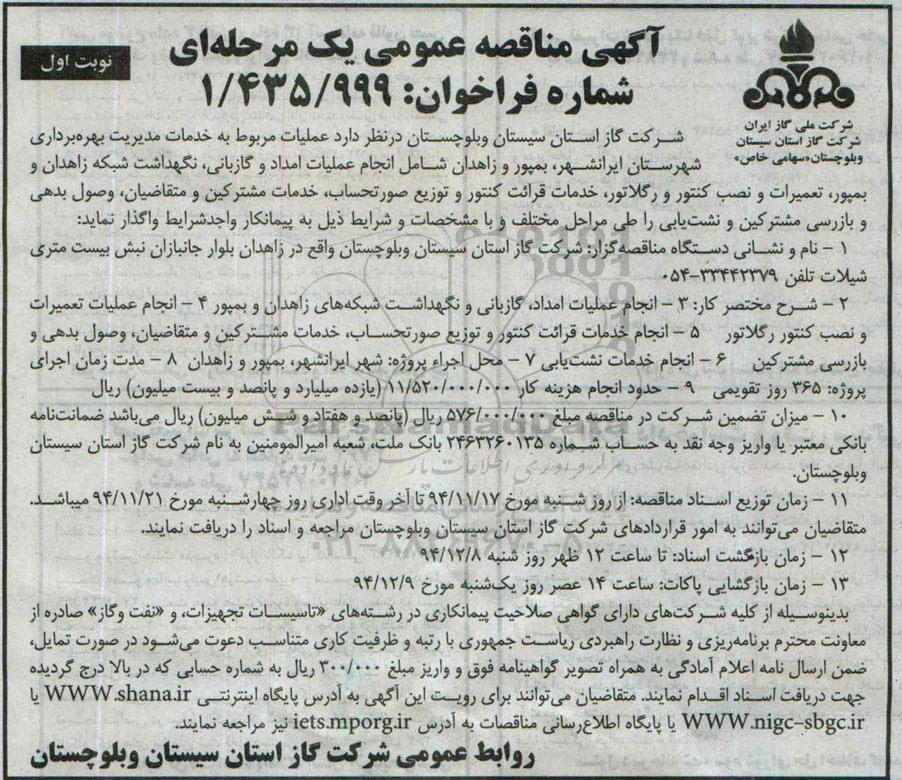 آگهی مناقصه عمومی یک مرحله‌ای
شماره فراخوان: ۱/۴۳۵/۹۹۹
نوبت اول
شرکت ملی گاز ایران
شرکت گاز استان سیستان
وبلوچستان«سهامی خاص»
شرکت گاز استان سیستان وبلوچستان درنظر دارد عملیات مربوط به خدمات مدیریت بهره‌برداری
شهرستان ایرانشهر، بمپور و زاهدان شامل انجام عملیات امداد و گازبانی، نگهداشت شبکه زاهدان و
بمپور، تعمیرات و نصب کنتور و رگلاتور، خدمات قرائت کنتور و توزیع صورتحساب، خدمات مشترکین و متقاضیان، وصول بدهی
و بازرسی مشترکین و نشت‌یابی را طی مراحل مختلف و با مشخصات و شرایط ذیل به پیمانکار واجدشرایط واگذار نماید:
۱ – نام و نشانی دستگاه مناقصه‌گزار: شرکت گاز استان سیستان وبلوچستان واقع در زاهدان بلوار جانبازان نبش بیست متری
شیلات تلفن ۳۳۴۴۲۳۷۹–۰۵۴
۲ – شرح مختصر کار: ۳ – انجام عملیات امداد، گازبانی و نگهداشت شبکه‌های زاهدان و بمپور ۴ – انجام عملیات تعمیرات
و نصب کنتور رگلاتور ۵ – انجام خدمات قرائت کنتور و توزیع صورتحساب، خدمات مشترکین و متقاضیان، وصول بدهی و
بازرسی مشترکین ۶ – انجام خدمات نشت‌یابی ۷ – محل اجراء پروژه: شهر ایرانشهر، بمپور و زاهدان ۸ – مدت زمان اجرای
پروژه: ۳۶۵ روز تقویمی ۹ – حدود انجام هزینه کار ۱۱/۵۲۰/۰۰۰/۰۰۰ (یازده میلیارد و پانصد و بیست میلیون) ریال
۱۰ – میزان تضمین شرکت در مناقصه مبلغ ۵۷۶/۰۰۰/۰۰۰ ریال (پانصد و هفتاد و شش میلیون) ریال می‌باشد ضمانت‌نامه
بانکی معتبر یا واریز وجه نقد به حساب شماره ۲۴۶۳۲۶۰۱۳۵ بانک ملت، شعبه امیرالمومنین به نام شرکت گاز استان سیستان
وبلوچستان.
۱۱ – زمان توزیع اسناد مناقصه: از روز شنبه مورخ ۹۴/۱۱/۱۷ تا آخر وقت اداری روز چهارشنبه مورخ ۹۴/۱۱/۲۱ میباشد.
متقاضیان می‌توانند به امور قراردادهای شرکت گاز استان سیستان وبلوچستان مراجعه و اسناد را دریافت نمایند.
۱۲ – زمان بازگشت اسناد: تا ساعت ۱۲ ظهر روز شنبه ۹۴/۱۲/۸
۱۳ – زمان بازگشایی پاکات: ساعت ۱۴ عصر روز یک‌شنبه مورخ ۹۴/۱۲/۹
بدینوسیله از کلیه شرکت‌های دارای گواهی صلاحیت پیمانکاری در رشته‌های «تاسیسات تجهیزات، و «نفت وگاز» صادره از
معاونت محترم برنامه‌ریزی و نظارت راهبردی ریاست جمهوری با رتبه و ظرفیت کاری متناسب دعوت می‌شود در صورت تمایل،
ضمن ارسال نامه اعلام آمادگی به همراه تصویر گواهینامه فوق و واریز مبلغ ۳۰۰/۰۰۰ ریال به شماره حسابی که در بالا درج گردیده
جهت دریافت اسناد اقدام نمایند. متقاضیان می‌توانند برای رویت این آگهی به آدرس پایگاه اینترنتی WWW.shana.ir یا
WWW.nigc-sbgc.ir یا پایگاه اطلاع‌رسانی مناقصات به آدرس iets.mporg.ir نیز مراجعه نمایند.
روابط عمومی شرکت گاز استان سیستان وبلوچستان
ParsNamadData